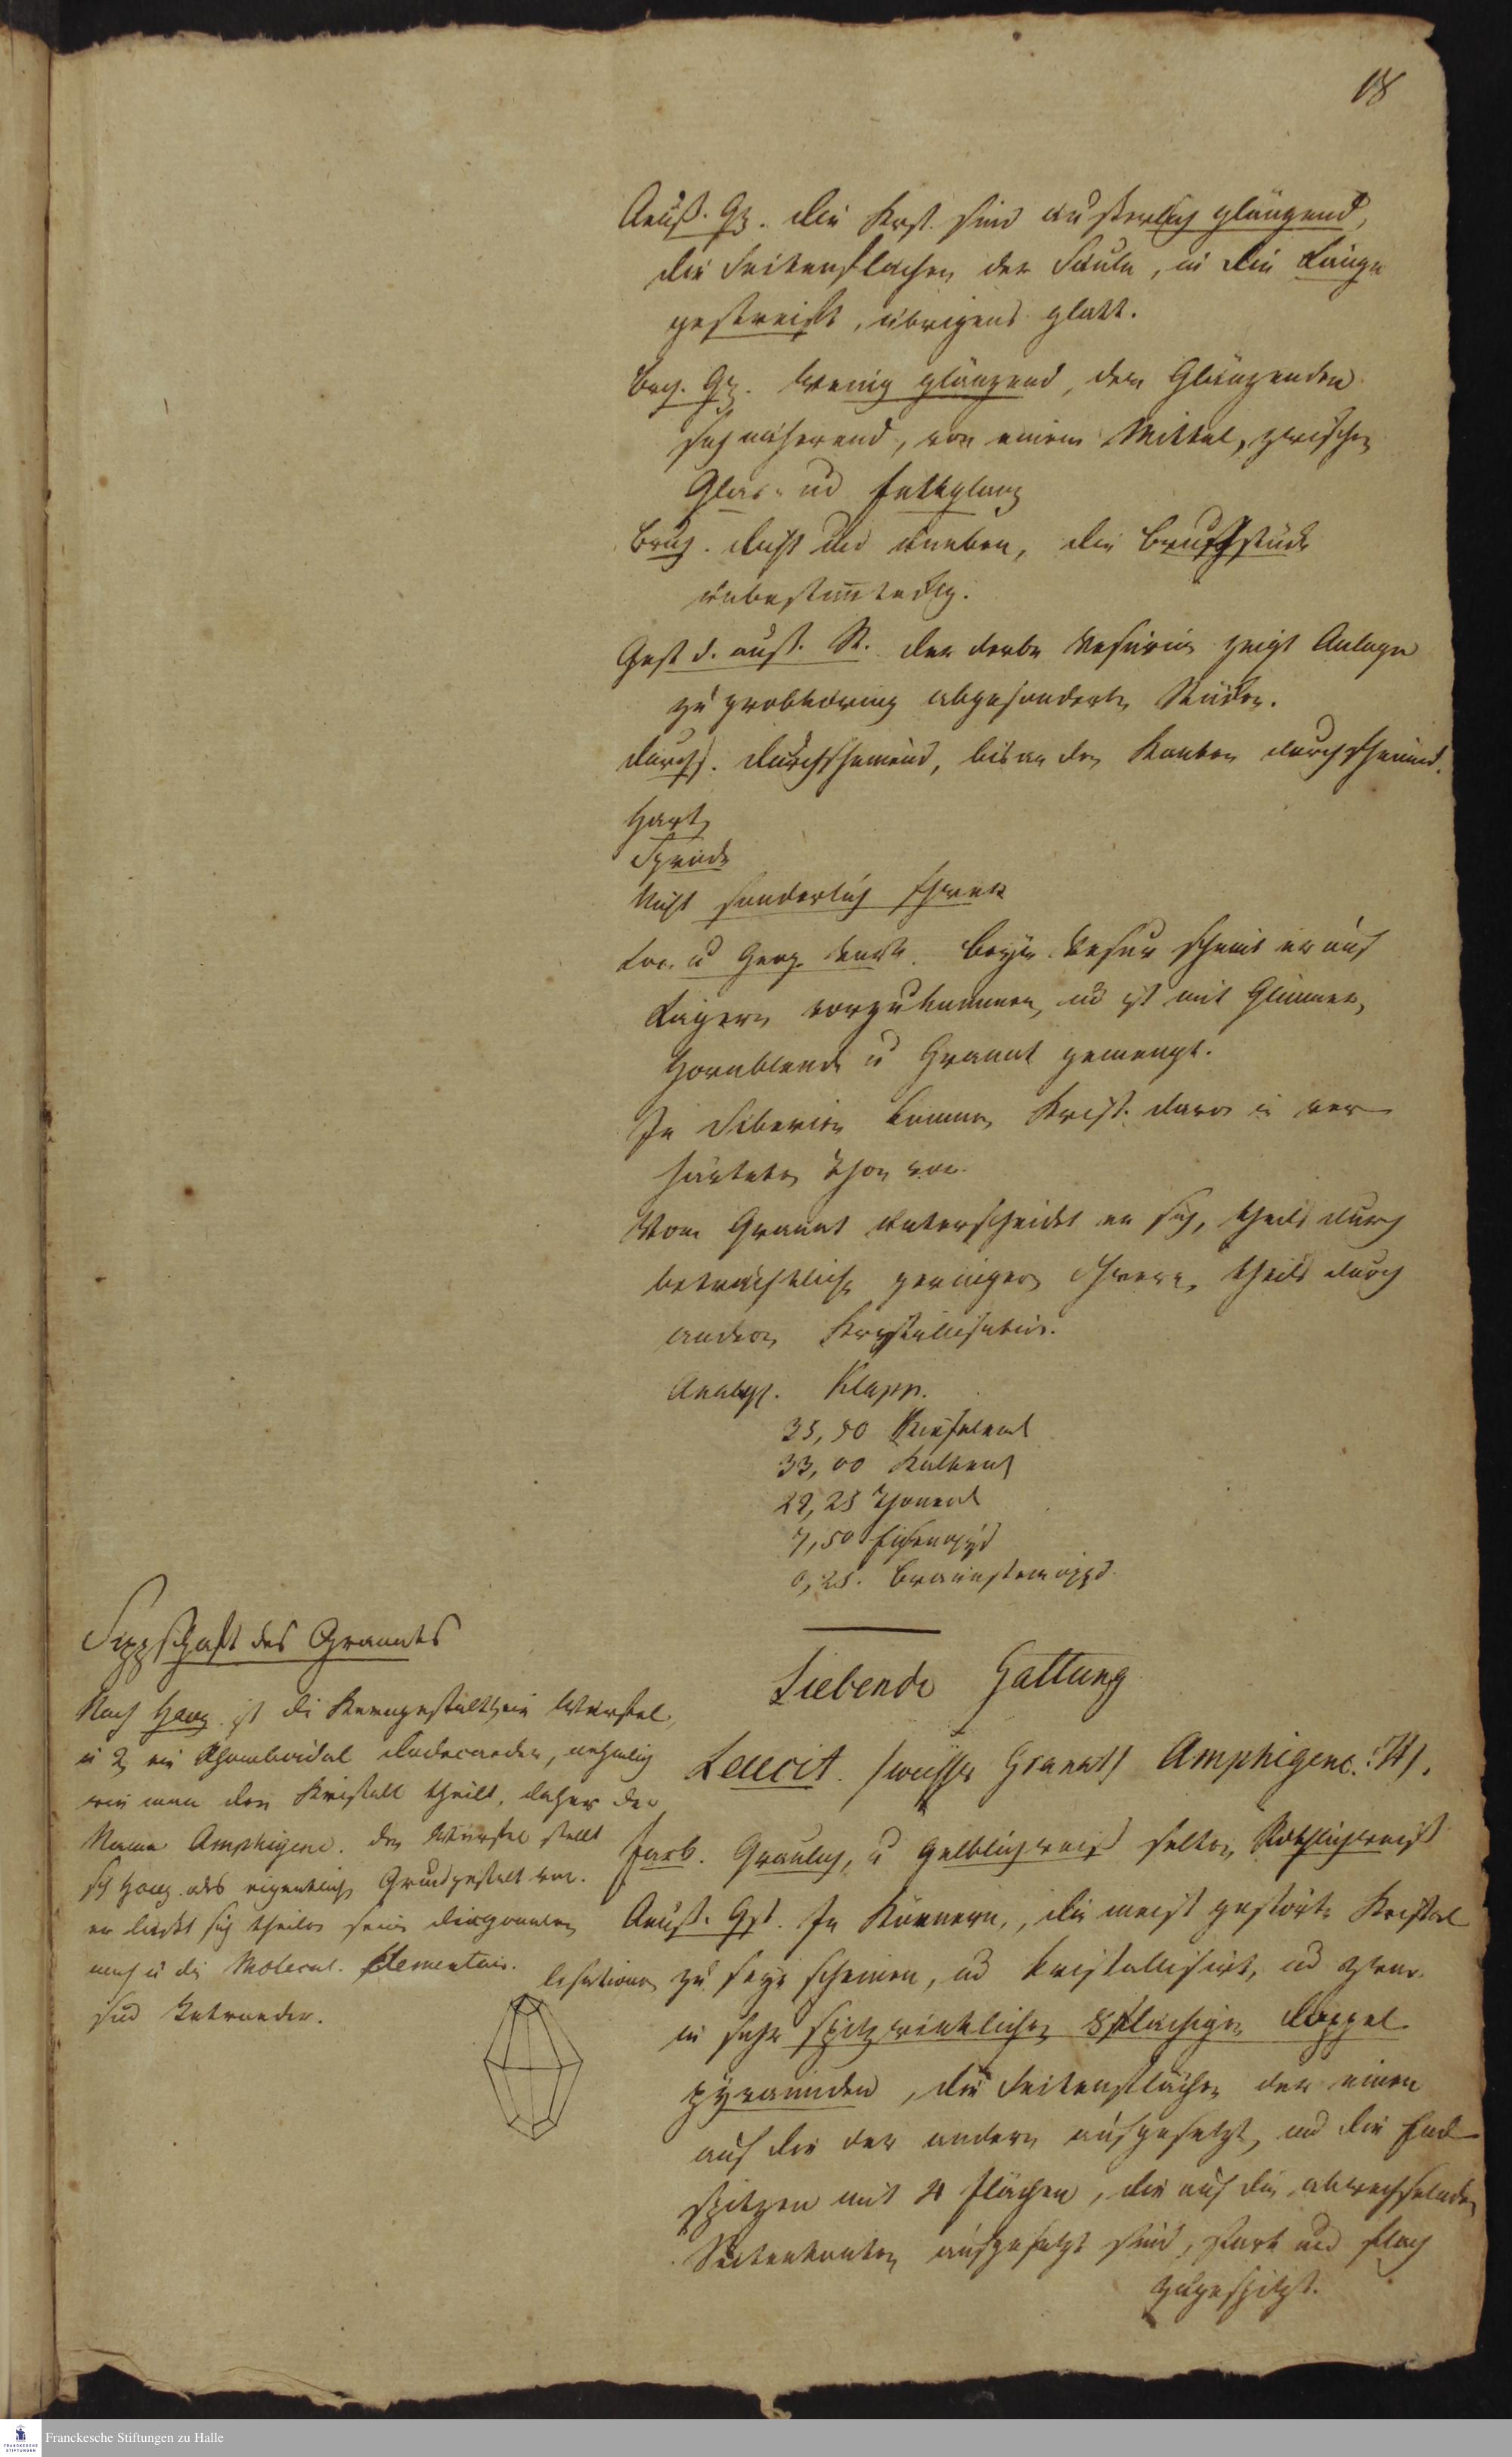 18
Aeuß. Gz. die Kryst. sind äusserlich glänzend,
die Seitenflächen der Säule, in die Länge
gestreift, übrigens glatt.
Brch. Gz. Wenig glänzend, dem Glänzenden
sich nähernd, von einem Mittel, zwischen
Glas- und Fettglanz
Bruch. dicht und uneben, die Bruchstücke
unbestimteckig.
Gest d. auß. St. der derbe Vesuvian zeigt Anlage
zu grobkörnig abgesonderten Stücken.
Durchs. durchscheinend, bis an den Kanten durchscheinend.
Hart,
Spröde
Nicht sonderlich schwer
Loc. u Geog. Beym Vesuv scheint er auf
Lagern vorzukommen, und ist mit Glimmer,
Hornblende u Granat gemengt.
In Siberien kommen Kryst. davon in ver
härteten Thon vor.
Vom Granat unterscheidet er sich, theils durch
beträchtlich geringere Schwere, theils durch
andere Krystallisation.
Analys. Klapp.
35,50 Kieselerd
33,00 Kalkerd
22,25 Thonerd
7,50 Eisenoxyd
0,25. Braunsteinoxyd.
Siebende Gattung
Leucit. /weisser Granat/ Amphigene. H/.
Farb. Graulich, u gelblichweiß selten Röthlichweiß
Aeuß. Gst. In Körnern, die meist gestörte Kristal
lisationen zu seyn scheinen, und kristallisirt, und zwar
in sehr spitzwinklichen 8flächigen Doppel
pyramiden, die Seitenflächen der einen
auf die der andern aufgesetzt, und die End
spitzen mit 4 Flächen, die auf die abwechselnden
Seitenkanten aufgesetzt sind, stark und flach
zugespitzt.
Sippschaft des Granats
Nach Hauy. ist die Kerngestalt 1, ein Würfel,
u 2, ein Rhomboidal Dodecaeder, nehmlich
wie man den Kristall theilt, daher der
Name Amphigene. den Würfel stellt
sich Hauy. als eigentliche Grundgestalt vor.
er liesse sich theilen seine Diagonalen
nach u die Molecul. Elementair.
sind Tetraeder.